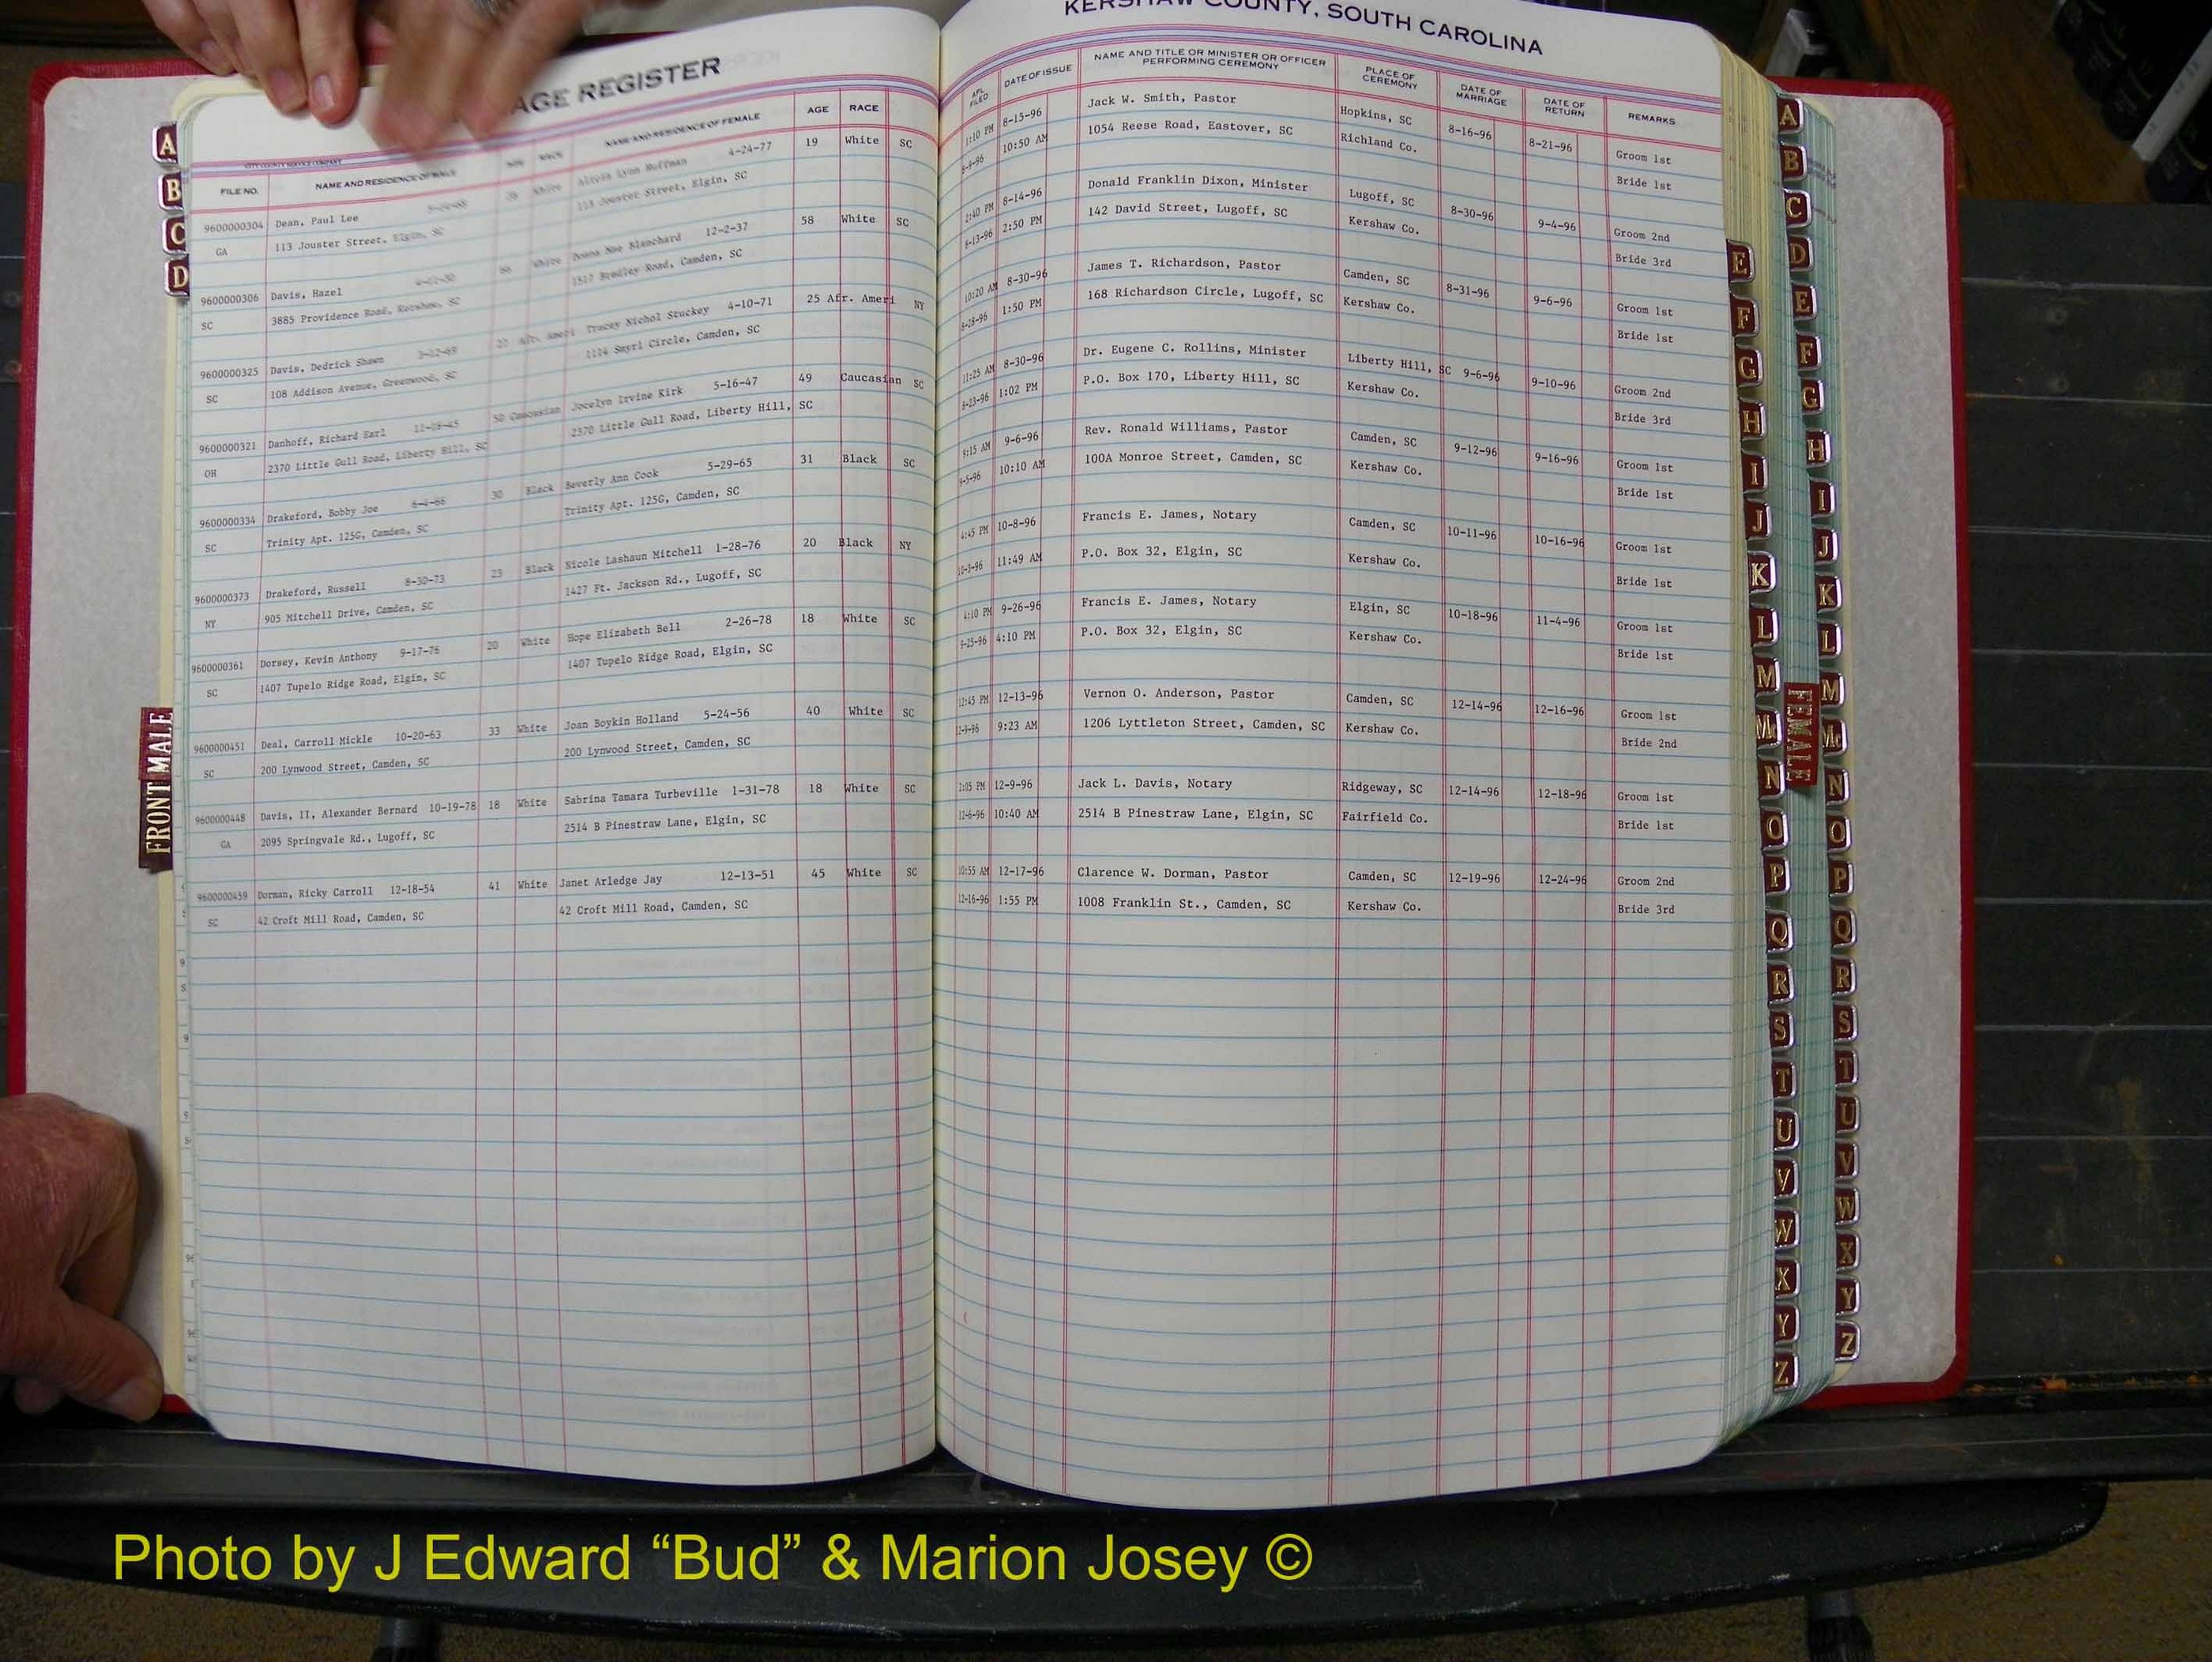 AGE REGISTER
KERSHAW COUNTY, SOUTH CAROLINA
CITY COUNTY SERVICE COMPANY
FILE NO. NAME AND RESIDENCE OF MALE AGE RACE NAME AND RESIDENCE OF FEMALE AGE RACE
APL. FILED DATE OF ISSUE NAME AND TITLE OR MINISTER OR OFFICER PERFORMING CEREMONY PLACE OF CEREMONY DATE OF MARRIAGE DATE OF RETURN REMARKS
9600000304 Dean, Paul Lee White Huffman 4-24-77 19 White SC
GA 113 Jouster Street, Elgin, SC 113 Jouster Street, Elgin, SC
1:10 PM 8-15-96 Jack W. Smith, Pastor Hopkins, SC 8-16-96 8-21-96 Groom 1st
10:50 AM 1054 Reese Road, Eastover, SC Richland Co. Bride 1st
9600000306 Davis, Hazel White Blanchard 12-2-37 58 White SC
SC 3885 Providence Road, Kershaw, SC Bradley Road, Camden, SC
2:40 PM 8-14-96 Donald Franklin Dixon, Minister Lugoff, SC 8-30-96 9-4-96 Groom 2nd
8-13-96 2:50 PM 142 David Street, Lugoff, SC Kershaw Co. Bride 3rd
9600000325 Davis, Dedrick Shawn 27 Afr. Ameri Tracey Nichol Stuckey 4-10-71 25 Afr. Ameri NY
SC 108 Addison Avenue, Greenwood, SC 1114 Smyrl Circle, Camden, SC
10:20 AM 8-30-96 James T. Richardson, Pastor Camden, SC 8-31-96 9-6-96 Groom 1st
8-28-96 1:50 PM 168 Richardson Circle, Lugoff, SC Kershaw Co. Bride 1st
9600000321 Danhoff, Richard Earl 50 Caucasian Jocelyn Irvine Kirk 5-16-47 49 Caucasian SC
OH 2370 Little Gull Road, Liberty Hill, SC 2370 Little Gull Road, Liberty Hill, SC
11:25 AM 8-30-96 Dr. Eugene C. Rollins, Minister Liberty Hill, SC 9-6-96 9-10-96 Groom 2nd
8-23-96 1:02 PM P.O. Box 170, Liberty Hill, SC Kershaw Co. Bride 3rd
9600000334 Drakeford, Bobby Joe 6-4-66 30 Black Beverly Ann Cook 5-29-65 31 Black SC
SC Trinity Apt. 125G, Camden, SC Trinity Apt. 125G, Camden, SC
9:15 AM 9-6-96 Rev. Ronald Williams, Pastor Camden, SC 9-12-96 9-16-96 Groom 1st
9-5-96 10:10 AM 100A Monroe Street, Camden, SC Kershaw Co. Bride 1st
9600000373 Drakeford, Russell 8-30-73 23 Black Nicole Lashaun Mitchell 1-28-76 20 Black NY
NY 905 Mitchell Drive, Camden, SC 1427 Ft. Jackson Rd., Lugoff, SC
4:45 PM 10-8-96 Francis E. James, Notary Camden, SC 10-11-96 10-16-96 Groom 1st
10-3-96 11:49 AM P.O. Box 32, Elgin, SC Kershaw Co. Bride 1st
9600000361 Dorsey, Kevin Anthony 9-17-76 20 White Hope Elizabeth Bell 2-26-78 18 White SC
SC 1407 Tupelo Ridge Road, Elgin, SC 1407 Tupelo Ridge Road, Elgin, SC
4:10 PM 9-26-96 Francis E. James, Notary Elgin, SC 10-18-96 11-4-96 Groom 1st
9-25-96 4:10 PM P.O. Box 32, Elgin, SC Kershaw Co. Bride 1st
9600000451 Deal, Carroll Mickle 10-20-63 33 White Joan Boykin Holland 5-24-56 40 White SC
SC 200 Lynwood Street, Camden, SC 200 Lynwood Street, Camden, SC
12:45 PM 12-13-96 Vernon O. Anderson, Pastor Camden, SC 12-14-96 12-16-96 Groom 1st
9:23 AM 1206 Lyttleton Street, Camden, SC Kershaw Co. Bride 2nd
9600000448 Davis, II, Alexander Bernard 10-19-78 18 White Sabrina Tamara Turbeville 1-31-78 18 White SC
GA 2095 Springvale Rd., Lugoff, SC 2514 B Pinestraw Lane, Elgin, SC
12-9-96 Jack L. Davis, Notary Ridgeway, SC 12-14-96 12-18-96 Groom 1st
12-6-96 10:40 AM 2514 B Pinestraw Lane, Elgin, SC Fairfield Co. Bride 1st
9600000459 Dorman, Ricky Carroll 12-18-54 41 White Janet Arledge Jay 12-13-51 45 White SC
SC 42 Croft Mill Road, Camden, SC 42 Croft Mill Road, Camden, SC
10:55 AM 12-17-96 Clarence W. Dorman, Pastor Camden, SC 12-19-96 12-24-96 Groom 2nd
12-16-96 1:55 PM 1008 Franklin St., Camden, SC Kershaw Co. Bride 3rd
A
B
C
D
FRONT MALE
E
F
G
H
I
J
K
L
M
Mc
N
O
P
Q
R
S
T
U
V
W
X
Y
Z
FEMALE
A
B
C
D
E
F
G
H
I
J
K
L
M
Mc
N
O
P
Q
R
S
T
U
V
W
X
Y
Z
Photo by J Edward “Bud” & Marion Josey ©